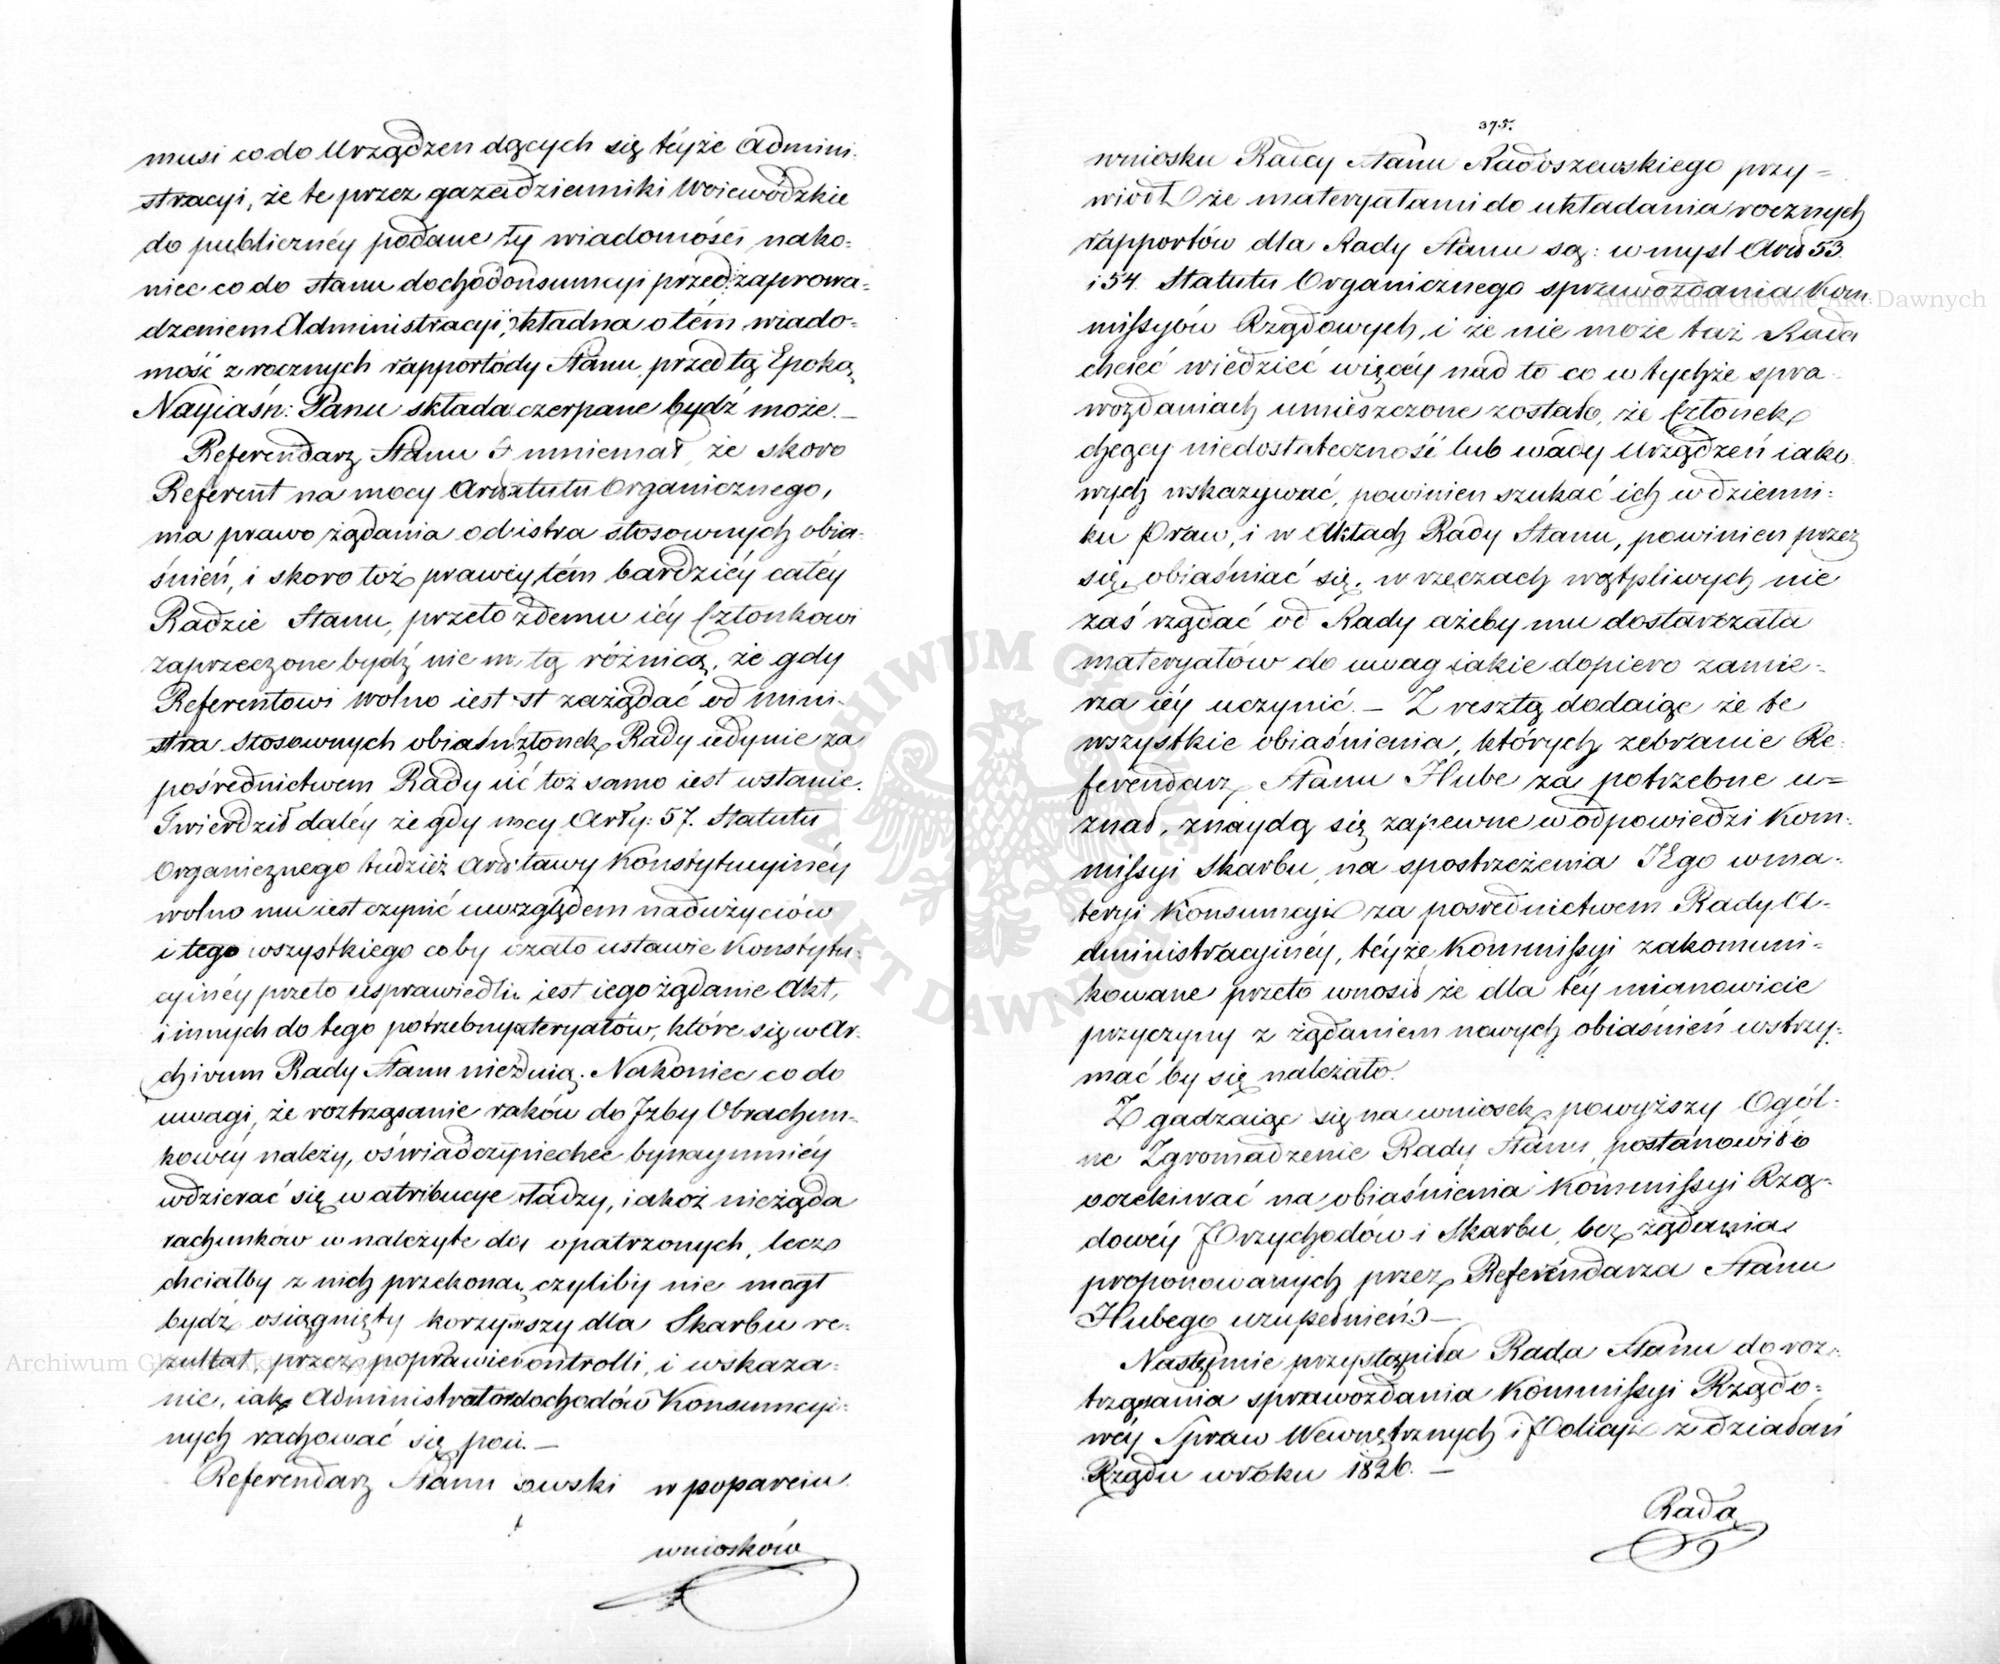 musi co do Urządzen dących się teyże Admini-
stracyi, że te przez gazedzienniki Woiewódzkie
do publicznéy podane ły wiadomości, nako-
niec co do stanu dochodonsumcyi przed zaprowa-
dzeniem Administracyi, kładna o tém wiado-
mość z rocznych rapportody Stanu przed tą Epoką
Nayiaśn: Panu składa czerpane bydź może.—
Referendarz Stanu mniemał, że skoro
Referent na mocy Organicznego,
ma prawo żądania od istra stosownych obia-
śnień, i skoro toż prawo tém bardziéy całéy
Radzie Stanu, przeto żdemu iéy Członkowi
zaprzeczone bydź nie m tą różnicą, że gdy
Referentowi wolno iest st zażądać od Mini-
stra stosownych obiaśn złonek Rady iedynie za
pośrednictwem Rady ić toż samo iest wstanie.
Twierdził daléy że gdy mocy Arty: 57. Statutu
Organicznego tudzież tawy Konstytucyinéy
wolno mu iest czynić uwzględem nadużyciów
i tego wszystkiego coby czało ustawie Konstytu-
cyinéy przeto usprawiedli iest iego żądanie Akt,
i innych do tego potrzebnyateryałów, które się w Ar-
chivum Rady Stanu nie dnią. Nakoniec co do
uwagi, że roztrząsanie raków do Jzby Obrachun-
kowéy należy, oświadczył niechce bynaymniéy
wdzierać się w atribucye tádzy, iakoż nieżąda
rachunków w należyte do opatrzonych, lecz
chciałby z nich przekona czyliby nie mógł
bydź osiągnięty korzyszy dla Skarbu re-
zultat, przez poprawieontrolli, i wskaza-
nie, iak Administratordochodów Konsumcyi-
nych rachować się poi.—
Referendarz Stanu owski w poparciu
wniosków
375.
wniosku Radcy Stanu Radoszewskiego przy-
wiódł że materyałami do układania rocznych
rapportów dla Rady Stanu są: w myśl 53.
i 54. Statutu Organicznego sprawozdania Kom-
missyów Rządowych, i że nie może taż Rada
chcieć wiedzieć więcéy nad to co w tychże spra-
wozdaniach umieszczone zostało, że Członek
chcący niedostateczność lub wady Urządzeń iako-
wych wskazywać, powinien szukać ich w dzienni-
ku Praw, i w Aktach Rady Stanu, powinien przez
się obiaśniać się, w rzeczach wątpliwych nie
zaś rządać od Rady ażeby mu dostarczała
materyałów do uwag iakie dopiero zamie-
rza iéy uczynić.— Z resztą dodaiąc że te
wszystkie obiaśnienia, których zebranie Re-
ferendarz Stanu Hube za potrzebne u-
znał, znaydą się zapewne w odpowiedzi Kom-
missyi Skarbu, na spostrzeżenia JEgo w ma-
teryi Konsumcyi za pośrednictwem Rady A-
dministracyinéy, téyże Kommissyi zakomuni-
kowane przeto wnosił że dla téy mianowicie
przyczyny z żądaniem nowych obiaśnień wstrzy-
mać by się należało.
Zgadzaiąc się na wniosek powyższy Ogól-
ne Zgromadzenie Rady Stanu postanowiło
oczekiwać na obiaśnienia Kommissyi Rzą-
dowéy Przychodów i Skarbu, bez żądania
proponowanych przez Referendarza Stanu
Hubego uzupełnień.—
Następnie przystąpiła Rada Stanu do roz-
trząsania sprawozdania Kommissyi Rządo-
wéy Spraw Wewnętrznych i Policyi z działań
Rządu w roku 1826.—
Rada
Archiwum Główne Akt Dawnych